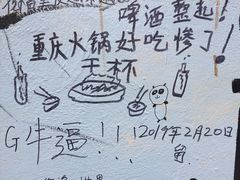 啤酒整起!
重庆火锅好吃惨了!
干杯
G牛逼!!! 2019年2月20日